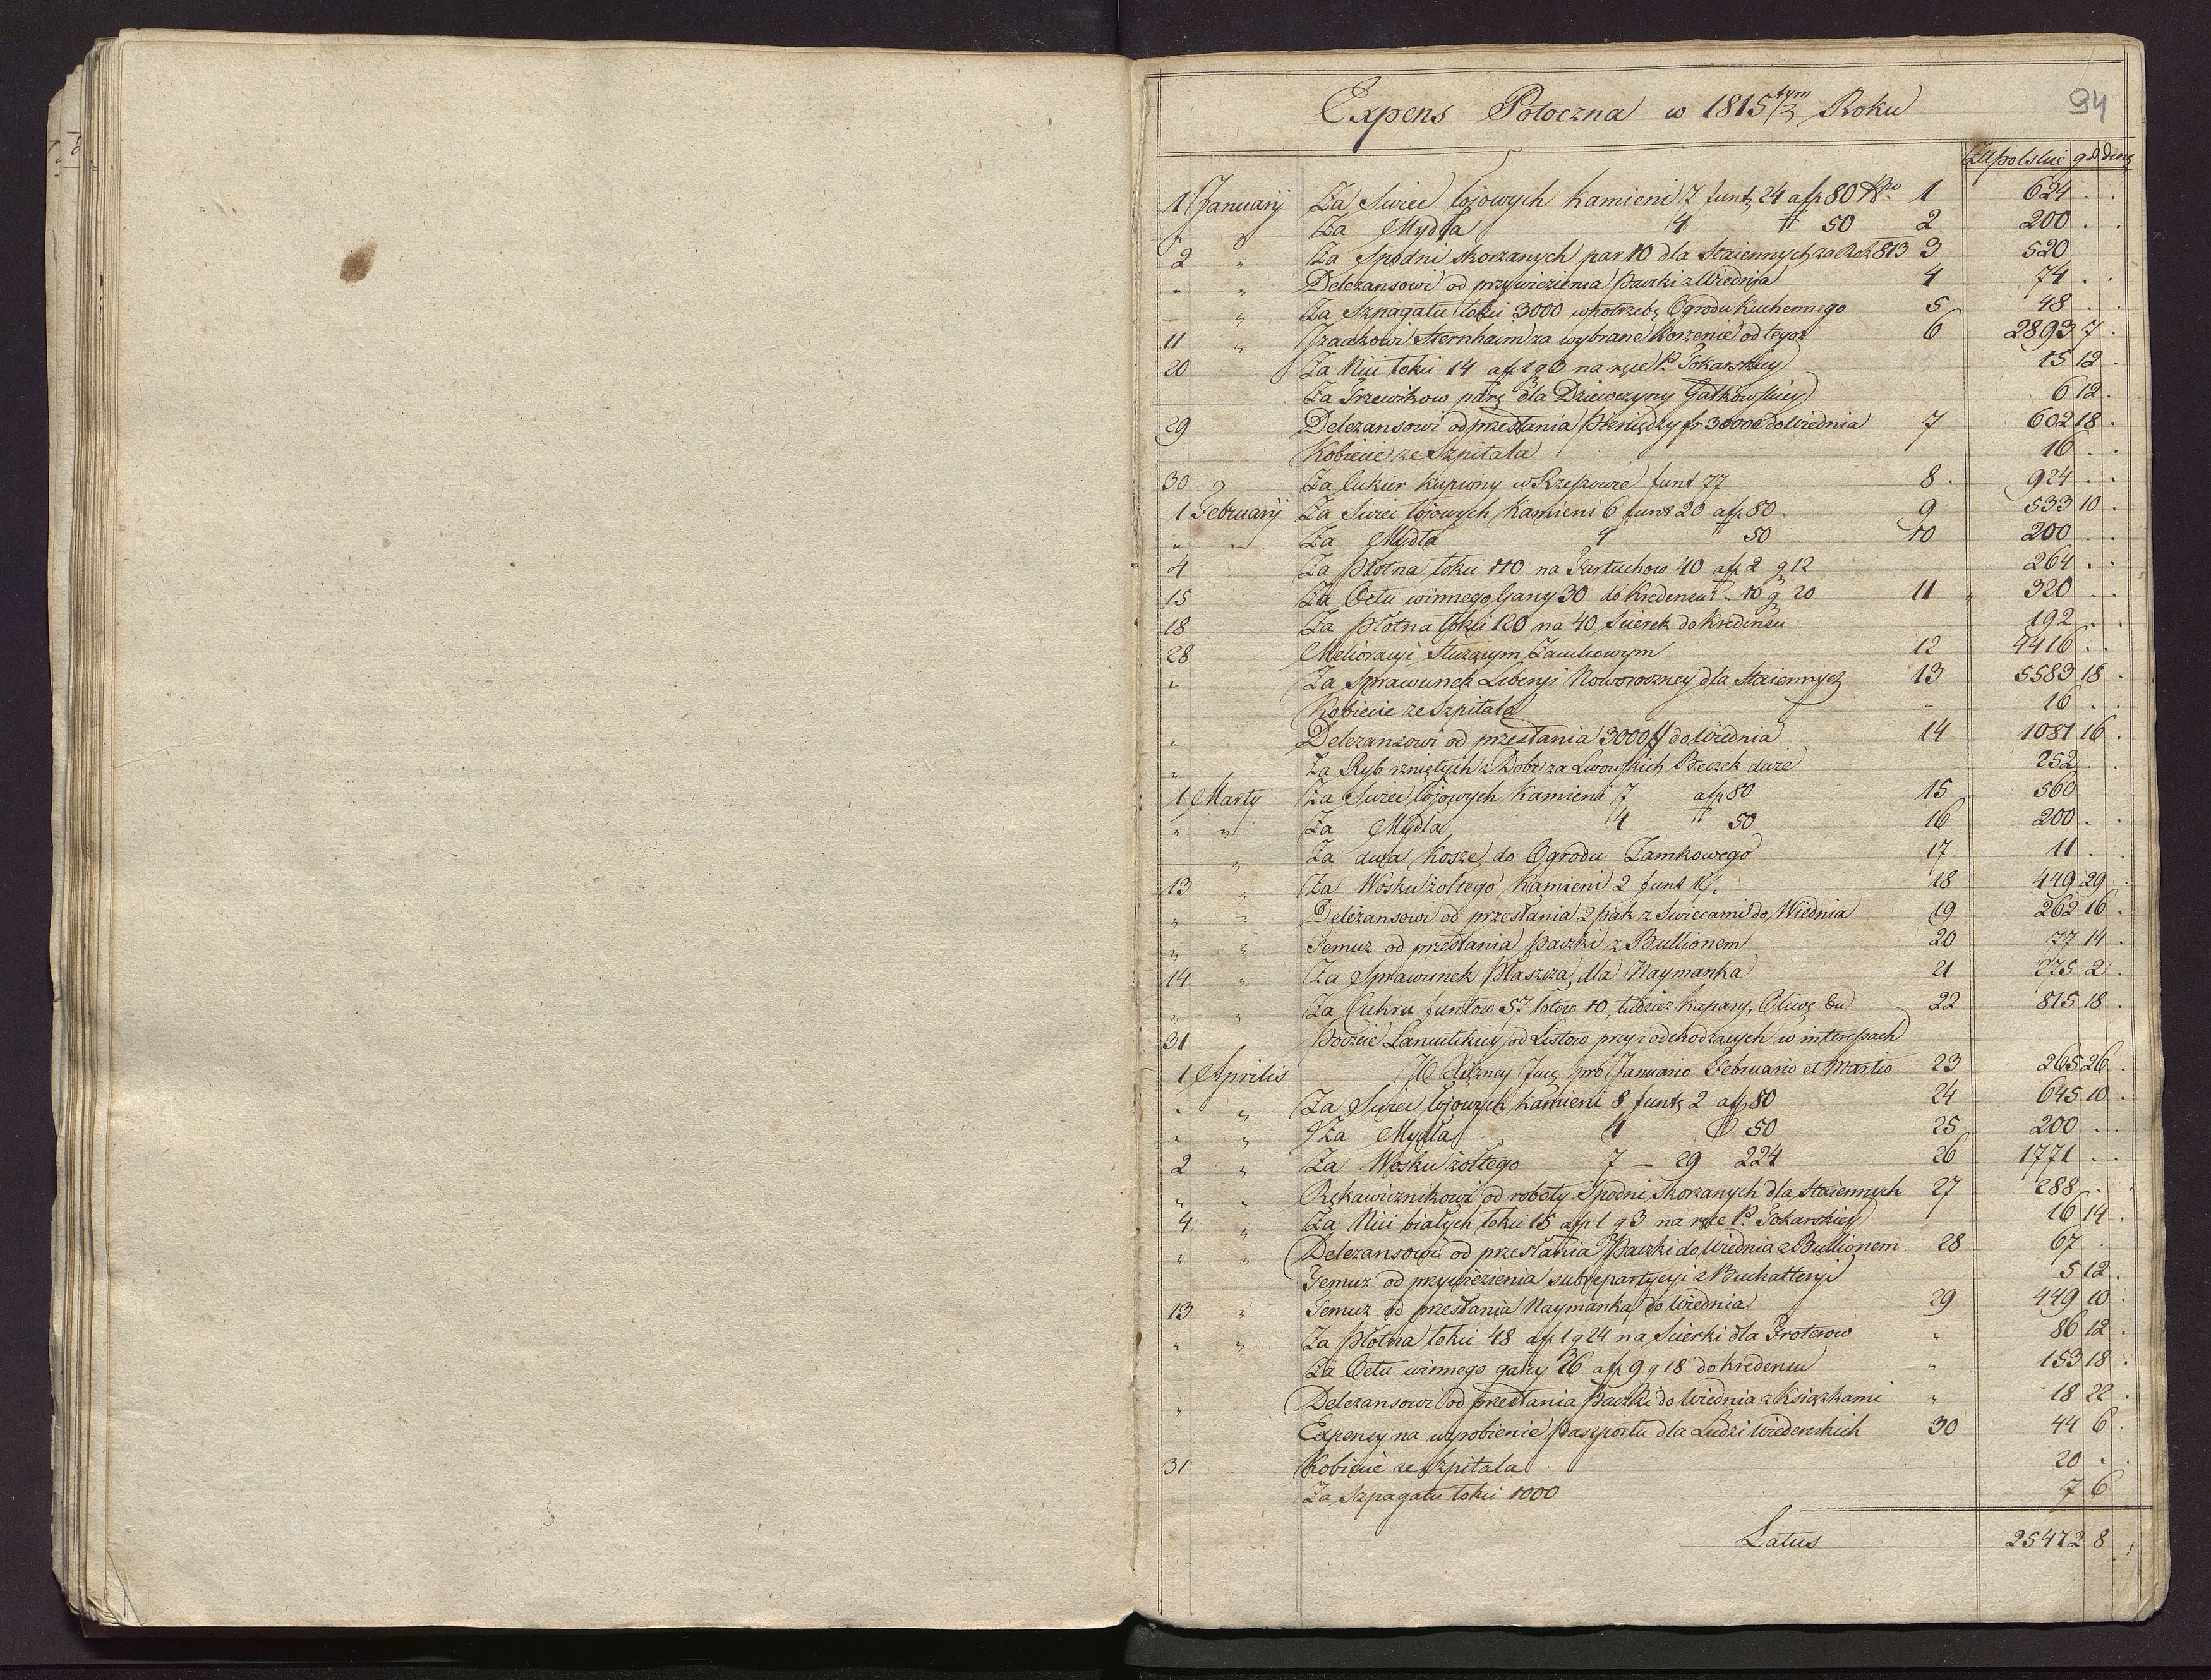 94
Expens Potoczna w 1815tym Roku
Złł polskie gr denq
1 Januarij Za Swiec łojowych Kamieni 7 funt 24 a fp 80 Nro 1 624 . .
" " Za Mydła 4 " 50 2 200 . .
2 " Za Spodni skorzanych par 10 dla Staiennych za Rok 813 3 520
" " Deleżansowi od przywiezienia Paczki z Wiednia 4 74 . .
" Za Szpagatu łokci 3000 w potrzebę Ogrodu Kuchennego 5 48 . .
11 " Izaakowi Sternhaim za wybrane Korzenie od tegoż 6 2893 7 .
20 Za Nici łokci 14 a fp 1 g 3 na ręce P. Tokarskiey 15 12 .
Za Trzewikow parę dla Dziewczyny Gałkowskiey 6 12 .
29 Deleżansowi od przesłania Pieniędzy fr 3000 do Wiednia 7 602 18 .
Kobiecie ze Szpitala 16 . .
30 Za Cukier kupiony w Rzeszowie funt 77 8 . 924 . .
1 Februarij Za Swiec łojowych Kamieni 6 funt 20 a fp 80 . 9 533 10 .
" " Za Mydła 4 " 50 10 200 . .
4 Za Płotna łokci 110 na Fartuchow 40 a fp 2 g 12 264 . .
15 Za Octu winnego Garcy 30 do Kredensu f. 10 g 20 11 320 . .
18 Za Płotna łokci 120 na 40 Scierek do Kredensu 192 . .
28 Melioracyi Służącym Zamkowym 12 4416 . .
" Za Sprawunek Liberyi Noworoczney dla Staiennych 13 5583 18 .
Kobiecie ze Szpitala " 16 . .
" Deleżansowi od przesłania 3000 ff do Wiednia 14 1081 16 .
" Za Ryb rzniętych z Dobr za Lwowskich Beczek dwie 252 . .
1 Marty Za Swiec łojowych Kamieni 7 a fp 80 15 560
" " Za Mydła 4 " 50 16 200 . .
" Za dwa Kosze do Ogrodu Zamkowego 17 11 . .
13 " Za Wosku żołtego Kamieni 2 funt 1/. 18 449 29 .
" " Deleżansowi od przesłania 2 pak z Swiecami do Wiednia 19 262 16 .
" " Temuż od przesłania Paczki z Bullionem 20 77 14 .
14 " Za Sprawunek Płaszcza dla Naymanka 21 275 2 .
" " Za Cukru funtow 57 łotow 10, tudzież Kapary, Oliwę &c 22 815 18 .
31 Poczcie Łancutskiey od Listow przy i odchodzących w interessach
1 Aprilis JO Xiężney Jmci pro Januario Februario et Martio 23 265 26 .
" " Za Swiec łojowych Kamieni 8 funt 2 a fp 80 24 645 10 .
" " Za Mydła 4 " 50 25 200 . .
2 " Za Wosku żołtego 7 — 29 224 26 1771 . .
" " Rękawicznikowi od roboty Spodni Skorzanych dla Staiennych 27 288 . .
4 " Za Nici białych łokci 15 a fp 1 g 3 na ręce P. Tokarskiey 16 14 .
" " Deleżansowi od przesłania Paczki do Wiednia z Bullionem 28 67 .
Temuż od przywiezienia subrepartycyi z Buchalteryi 5 12 .
13 " Temuż od przesłania Naymanka do Wiednia 29 449 10 .
" " Za Płotna łokci 48 a fp 1 g 24 na Scierki dla Froterow " 86 12 .
Za Octu winnego garcy 16 a fp 9 g 18 do Kredensu " 153 18 .
" Deleżansowi od przesłania Paczki do Wiednia z Książkami " 18 22 .
Expensy na wyrobienie Paszportu dla Ludzi Wiedenskich 30 44 6 .
31 Kobiecie ze Szpitala 20 . .
Za Szpagatu łokci 1000 7 6
Latus 25472 8 .